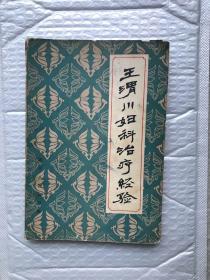 王渭川妇科治疗经验